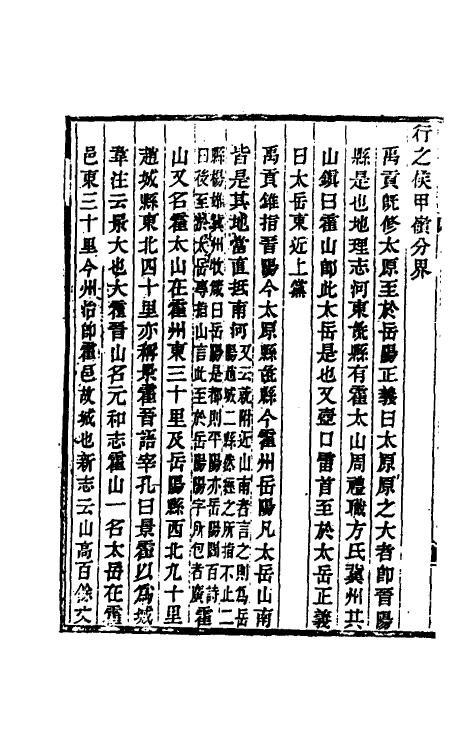 行之侯甲嶺分界
禹貢旣修太原至於岳陽正義曰太原原之大者卽晉陽
縣是也地理志河東彘縣有霍太山周禮職方氏冀州其
山鎮曰霍山卽此太岳是也又壺口雷首至於太岳正義
曰太岳東近上黨
禹貢錐指晉陽今太原縣彘縣今霍州岳陽凡太岳山南
皆是其地當直抵南河又云就附近山南者言之則為岳陽趙城二縣然經之所指不止二
縣楊雄冀州牧箴曰岳陽是都則平陽亦岳陽閻百詩曰後至於太岳專指山言此至於岳陽陽字所包者廣霍
山又名霍太山在霍州東三十里及岳陽縣西北九十里
趙城縣東北四十里亦稱景霍晉語宰孔曰景霍以為城
韋注云景大也大霍晉山名元和志霍山一名太岳在霍
邑東三十里今州治卽霍邑故城也新志云山高百餘丈